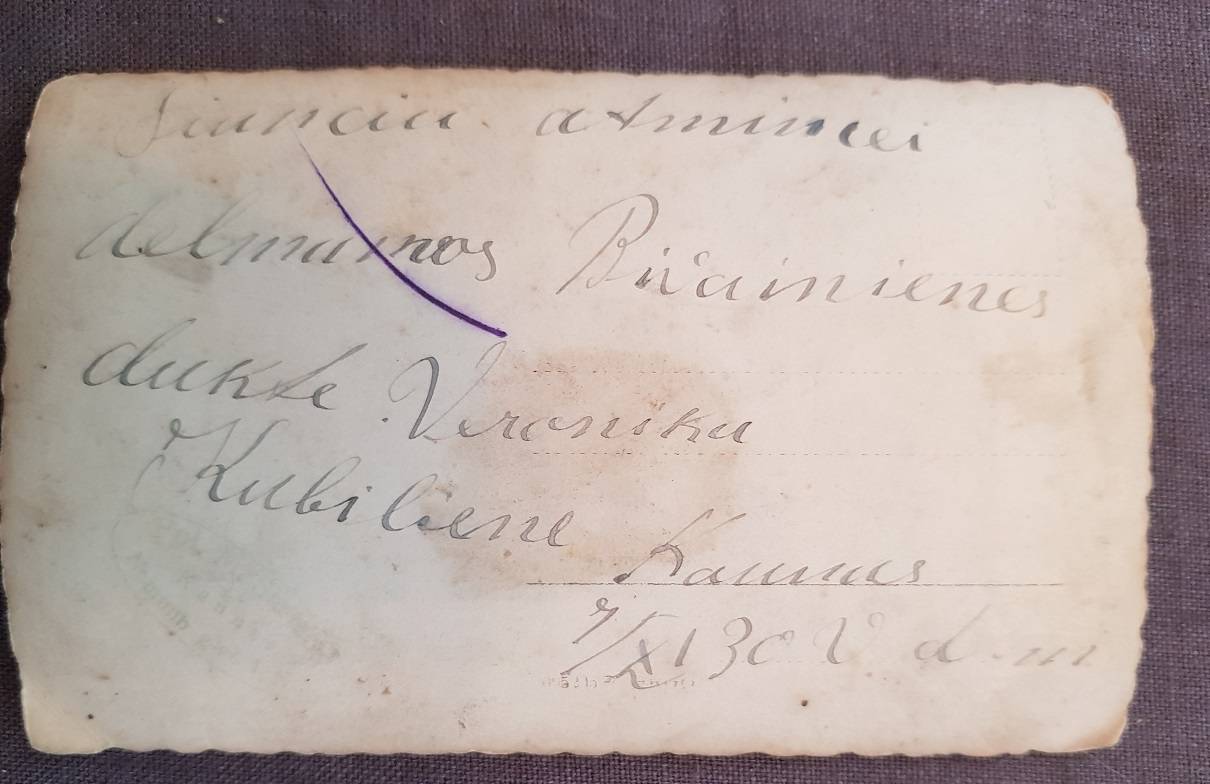 Siunciu atmincei
delmamos Biržainienes
dukte Veronika
Kubiliene Kaunas
9/XI 30 V d. m